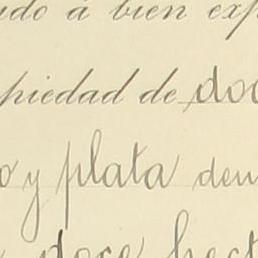 ido á bien exp
piedad de doc
o y plata den
doce hect